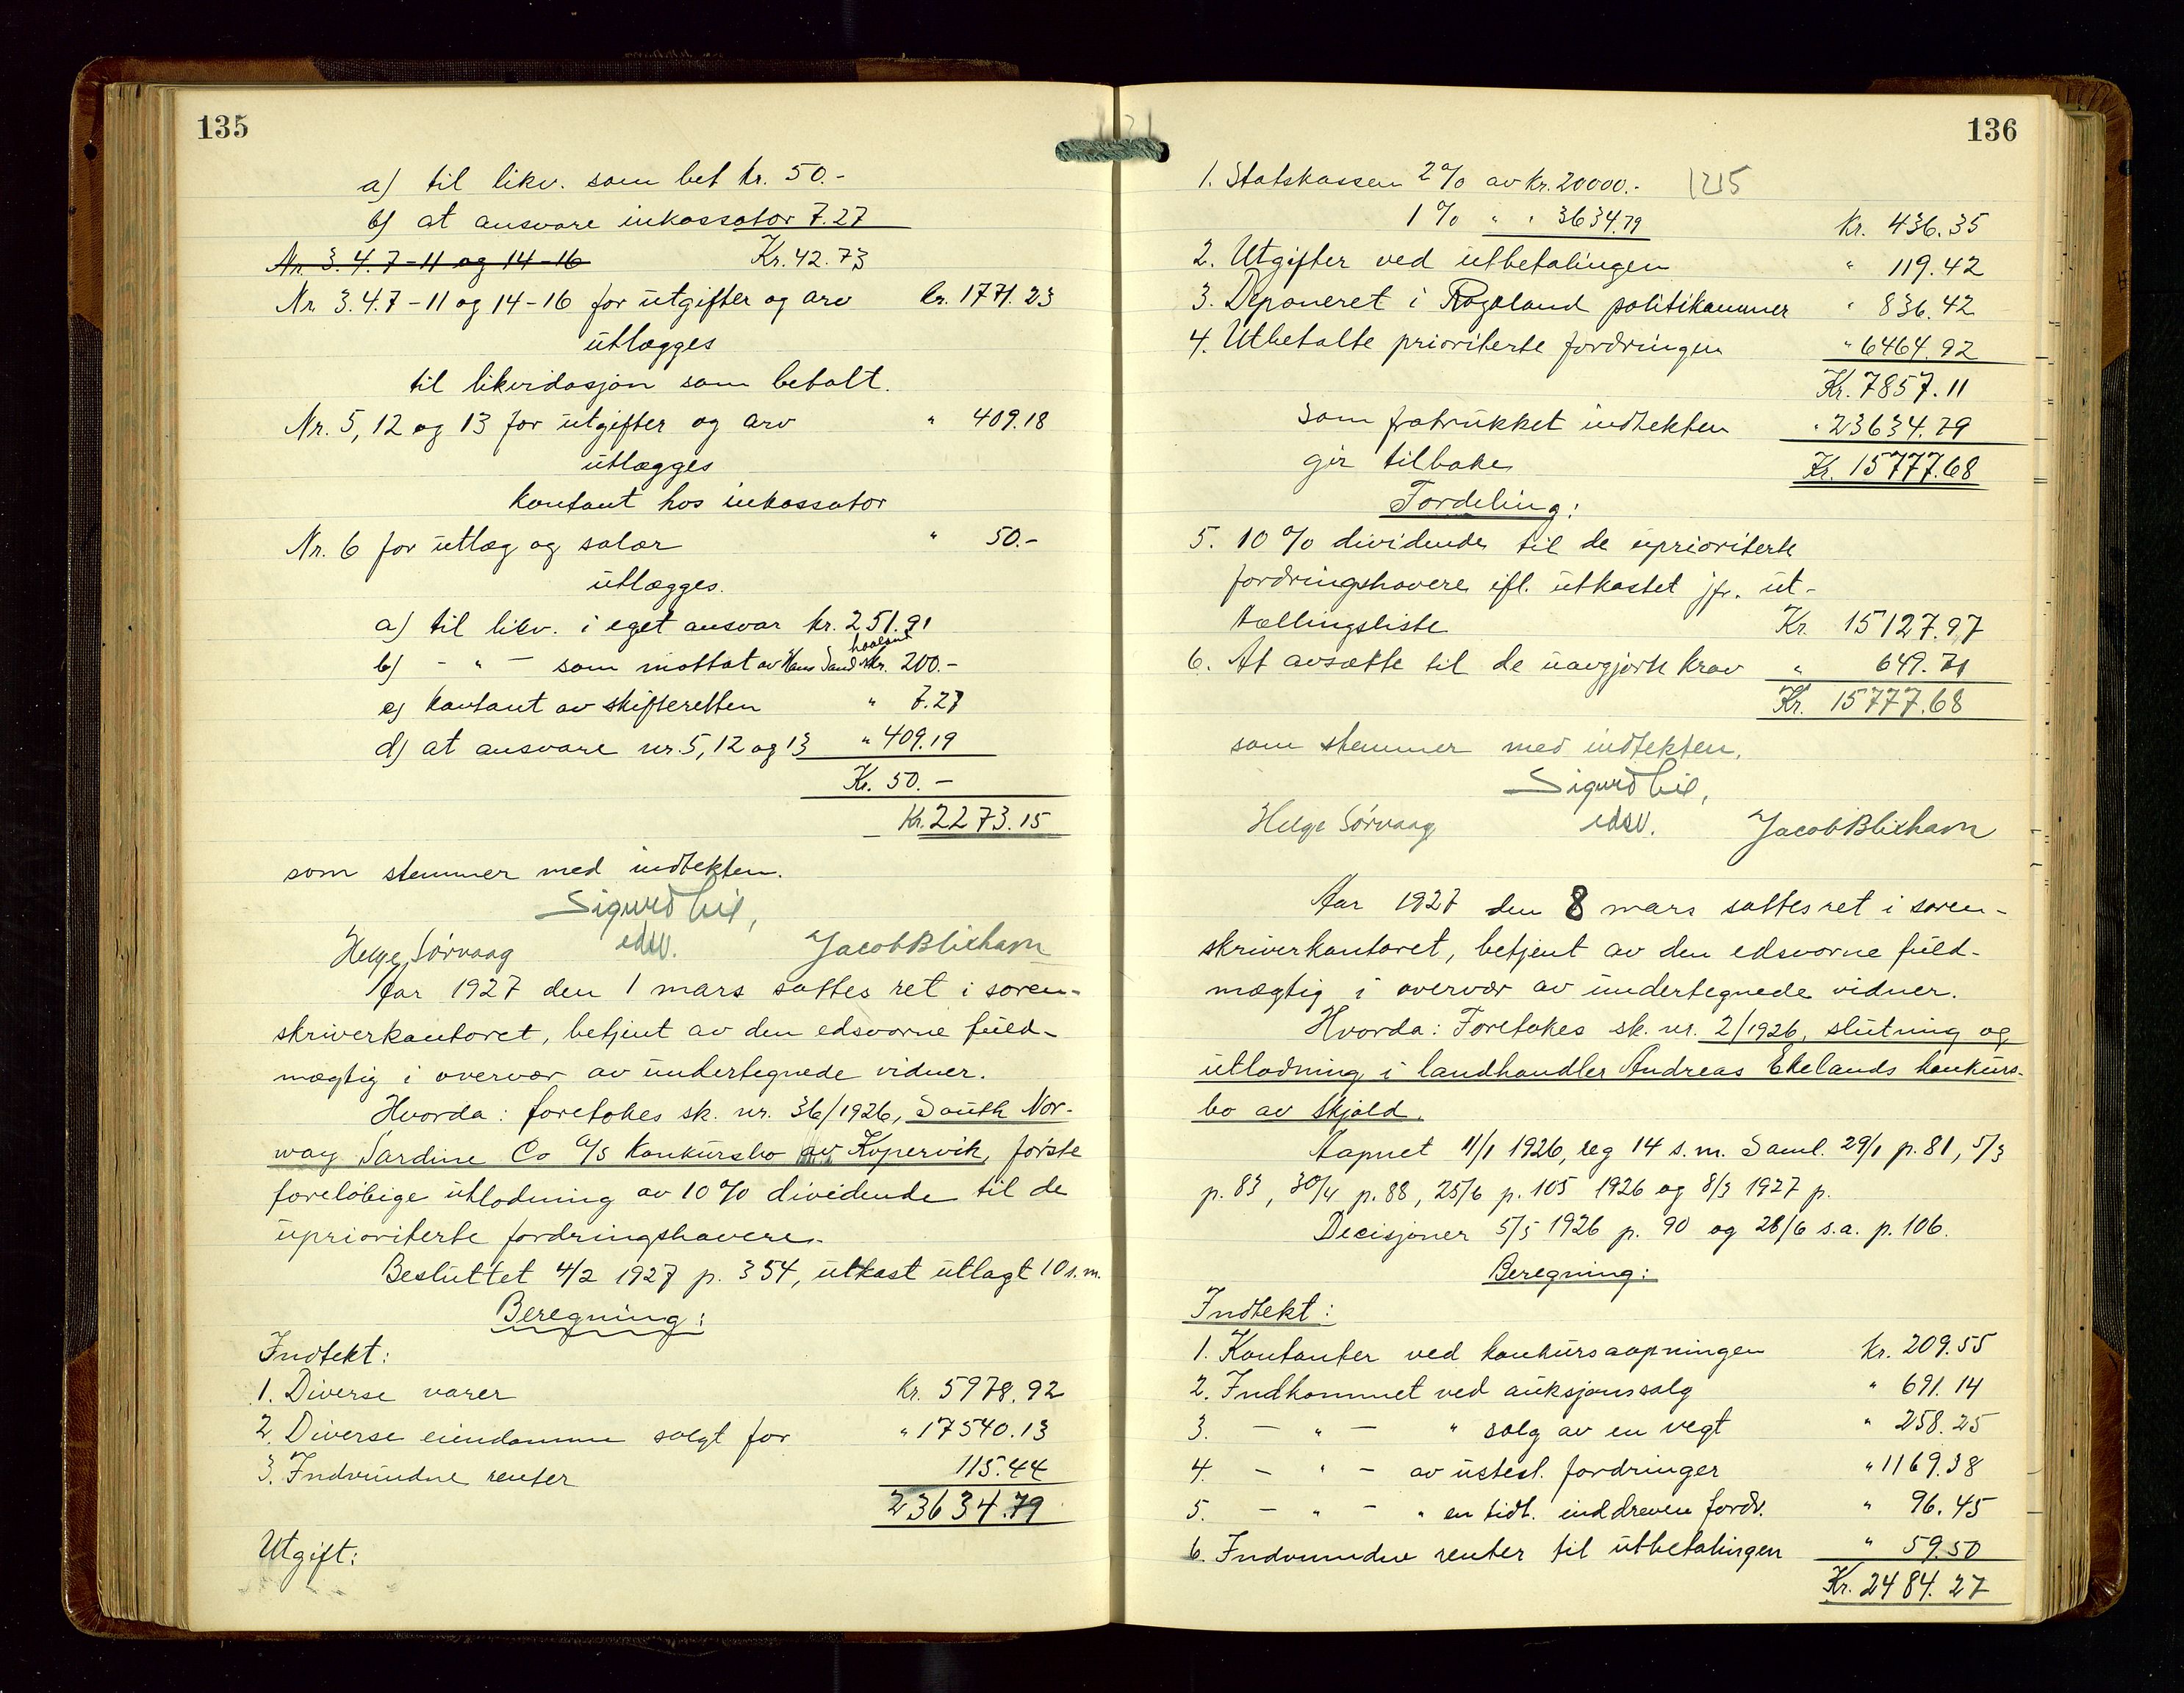 135
a) til likv. som bet kr. 50.-
b) at ansvare inkassator 7.27
Nr. 3. 4. 7-11 og 14-16 Kr. 42.73
Nr. 3. 4. 7-11 og 14-16 for utgifter og arv kr. 1771.23
utlægges
til likvidasjon som betalt.
Nr. 5, 12 og 13 for utgifter og arv " 409.18
utlægges
kontant hos inkassator
Nr. 6 for utlæg og salær " 50.-
utlægges.
a) til likv. i eget ansvar kr. 251.91
b) - " - som mottat av Hans Sand kr. 200.-
c) kontant av skifteretten " 7.27
d) at ansvare nr. 5, 12 og 13 " 409.19
Kr. 50.-
Kr. 2273.15
som stemmer med indtekten.
Sigurd
edsv.
Helge Sørvaag Jacob Blixhavn
Aar 1927 den 1 mars sattes ret i soren-
skriverkontoret, betjent av den edsvorne fuld-
mægtig i overvær av undertegnede vidner.
Hvorda: foretokes sk. nr. 36/1926, South Nor-
way Sardine Co A/S konkursbo av Kopervik, første
foreløbige utlodning av 10 % dividende til de
uprioriterte fordringshavere.
Besluttet 4/2 1927 p. 354, utkast utlagt 10 s.m.
Beregning:
Indtekt:
1. Diverse varer Kr. 5978.92
2. Diverse eiendomme solgt for " 17540.13
3. Indvundne renter 115.44
23634.79
Utgift:
136
1. Statskassen 2 % av kr. 20000.- 1215
1 % " " 3634.79 Kr. 436.35
2. Utgifter ved utbetalingen " 119.42
3. Deponeret i Rogaland politikammer " 836.42
4. Utbetalte prioriterte fordringer " 6464.92
Kr. 7857.11
som fratrukket indtekten " 23634.79
gir tilbake Kr. 15777.68
Fordeling:
5. 10 % dividende til de uprioriterte
fordringshavere ifl. utkastet jfr. ut-
tællingsliste Kr. 15127.97
6. At avsætte til de uavgjorte krav " 649.71
Kr. 15777.68
som stemmer med indtekten.
Sigurd
Helge Sørvaag edsv. Jacob Blixhavn
Aar 1927 den 8 mars sattes ret i soren-
skriverkontoret, betjent av den edsvorne fuld-
mægtig i overvær av undertegnede vidner.
Hvorda: Foretokes sk. nr. 2/1926, slutning og
utlodning i landhandler Andreas Ekelands konkurs-
bo av Skjold.
Aapnet 11/1 1926, reg 14 s.m. Saml. 29/1 p. 81, 5/3
p. 83, 30/4 p. 88, 25/6 p. 105 1926 og 8/3 1927 p.
Decisjoner 5/5 1926 p. 90 og 28/6 s.a. p. 106.
Beregning:
Indtekt:
1. Kontanter ved konkursaapningen Kr. 209.55
2. Indkommet ved auksjonssalg " 691.14
3. - " - " salg av en vegt " 258.25
4. - " - av utest. fordringer " 1169.38
5. - " - " en tidl. inddreven fordr. " 96.45
6. Indvundne renter til utbetalingen " 59.50
Kr. 2484.27